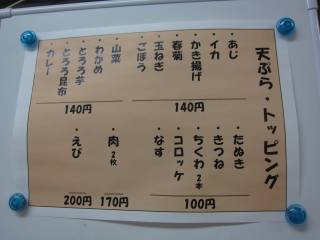 天ぷら・トッピング
・あじ
・イカ
・かき揚げ
・春菊
・玉ねぎ
・ごぼう
140円
・山菜
・わかめ
・とろろ芋
・とろろ昆布
・カレー
140円
・たぬき
・きつね
・ちくわ2本
・コロッケ
・なす
100円
・肉2枚
170円
・えび
200円